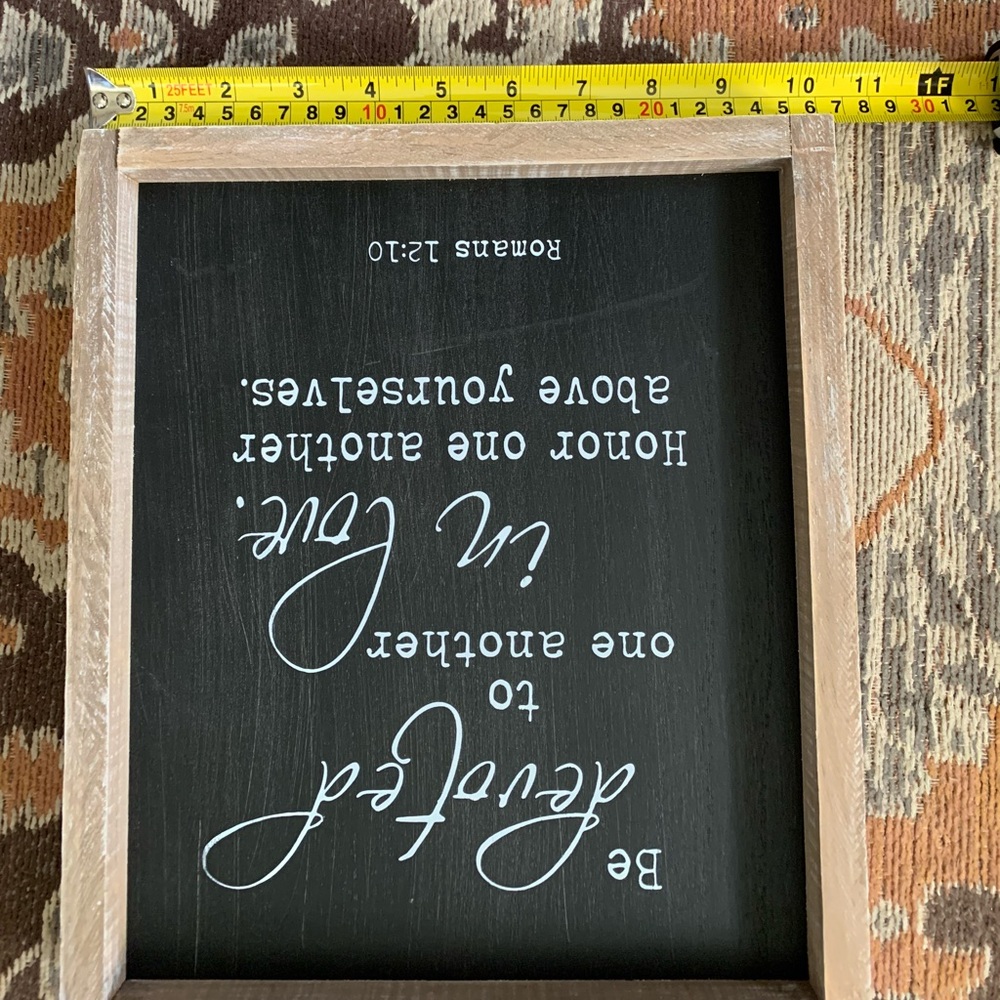 1 25FEET 2 3 4 5 6 7 8 9 10 11 1F
2 3 7.5m 4 5 6 7 8 9 10 1 2 3 4 5 6 7 8 9 20 1 2 3 4 5 6 7 8 9 30 1 2 3
Be
devoted
to
one another
in love.
Honor one another
above yourselves.
Romans 12:10